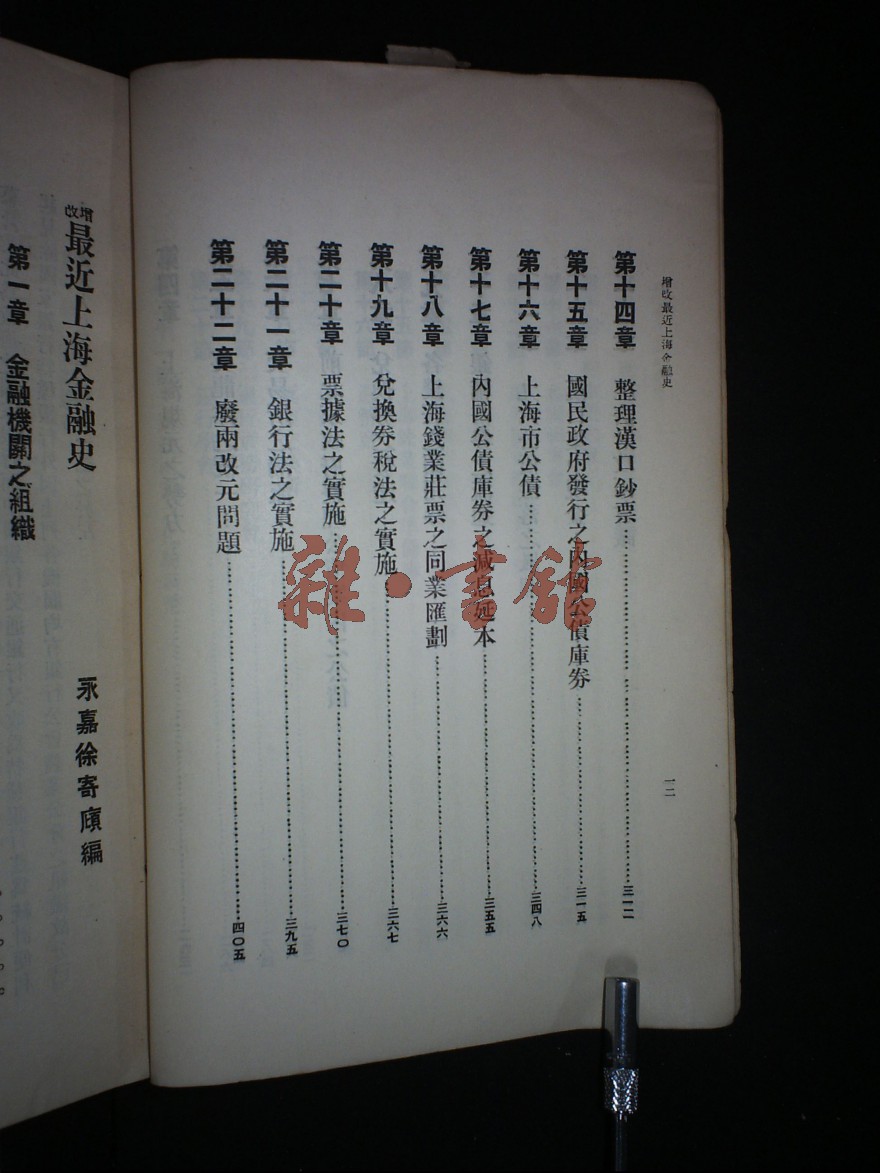 增改最近上海金融史
第十四章 整理漢口鈔票 三一二
第十五章 國民政府發行之內國公債庫券 三一五
第十六章 上海市公債 三四八
第十七章 內國公債庫券之減息延本 三五五
第十八章 上海錢業莊票之同業匯劃 三六六
第十九章 兌換券稅法之實施 三六七
第二十章 票據法之實施 三七〇
第二十一章 銀行法之實施 三九五
第二十二章 廢兩改元問題 四〇五
增改最近上海金融史
永嘉徐寄廎編
第一章 金融機關之組織
雜·書館